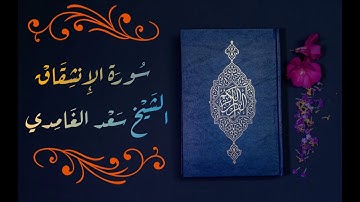 سُورَة الإِنشِقَاق
الشَيْخ سَعْد الغَامِدي
القرآن الكريم